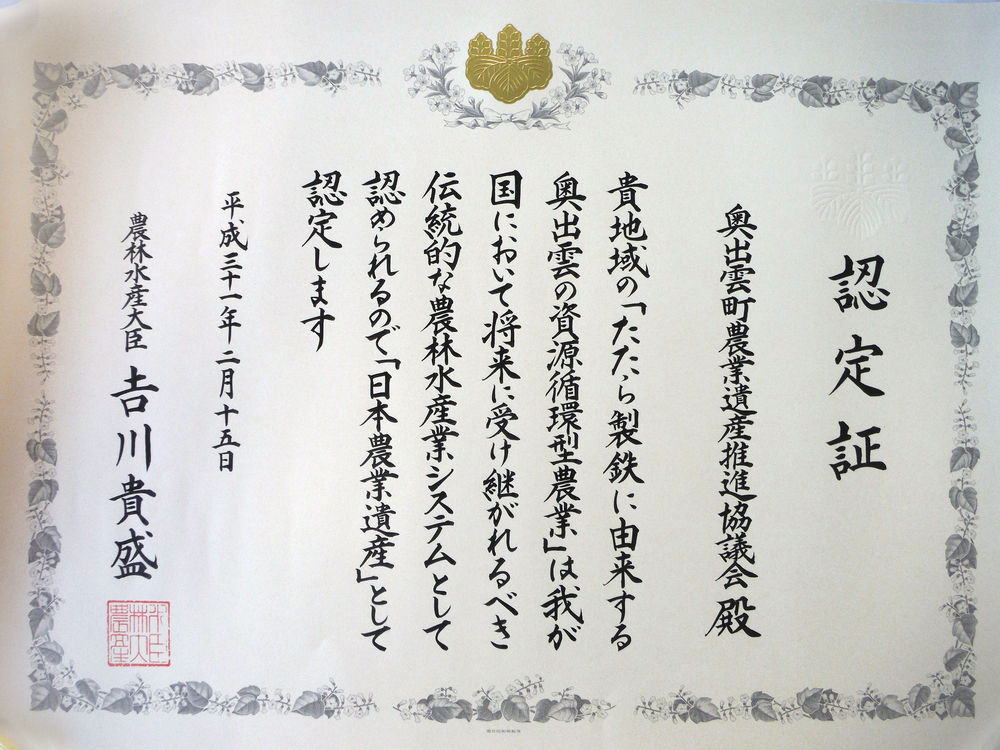 認定証
奥出雲町農業遺産推進協議会 殿
貴地域の「たたら製鉄に由来する
奥出雲の資源循環型農業」は我が
国において将来に受け継がれるべき
伝統的な農林水産業システムとして
認められるので「日本農業遺産」として
認定します
平成三十一年二月十五日
農林水産大臣 吉川貴盛